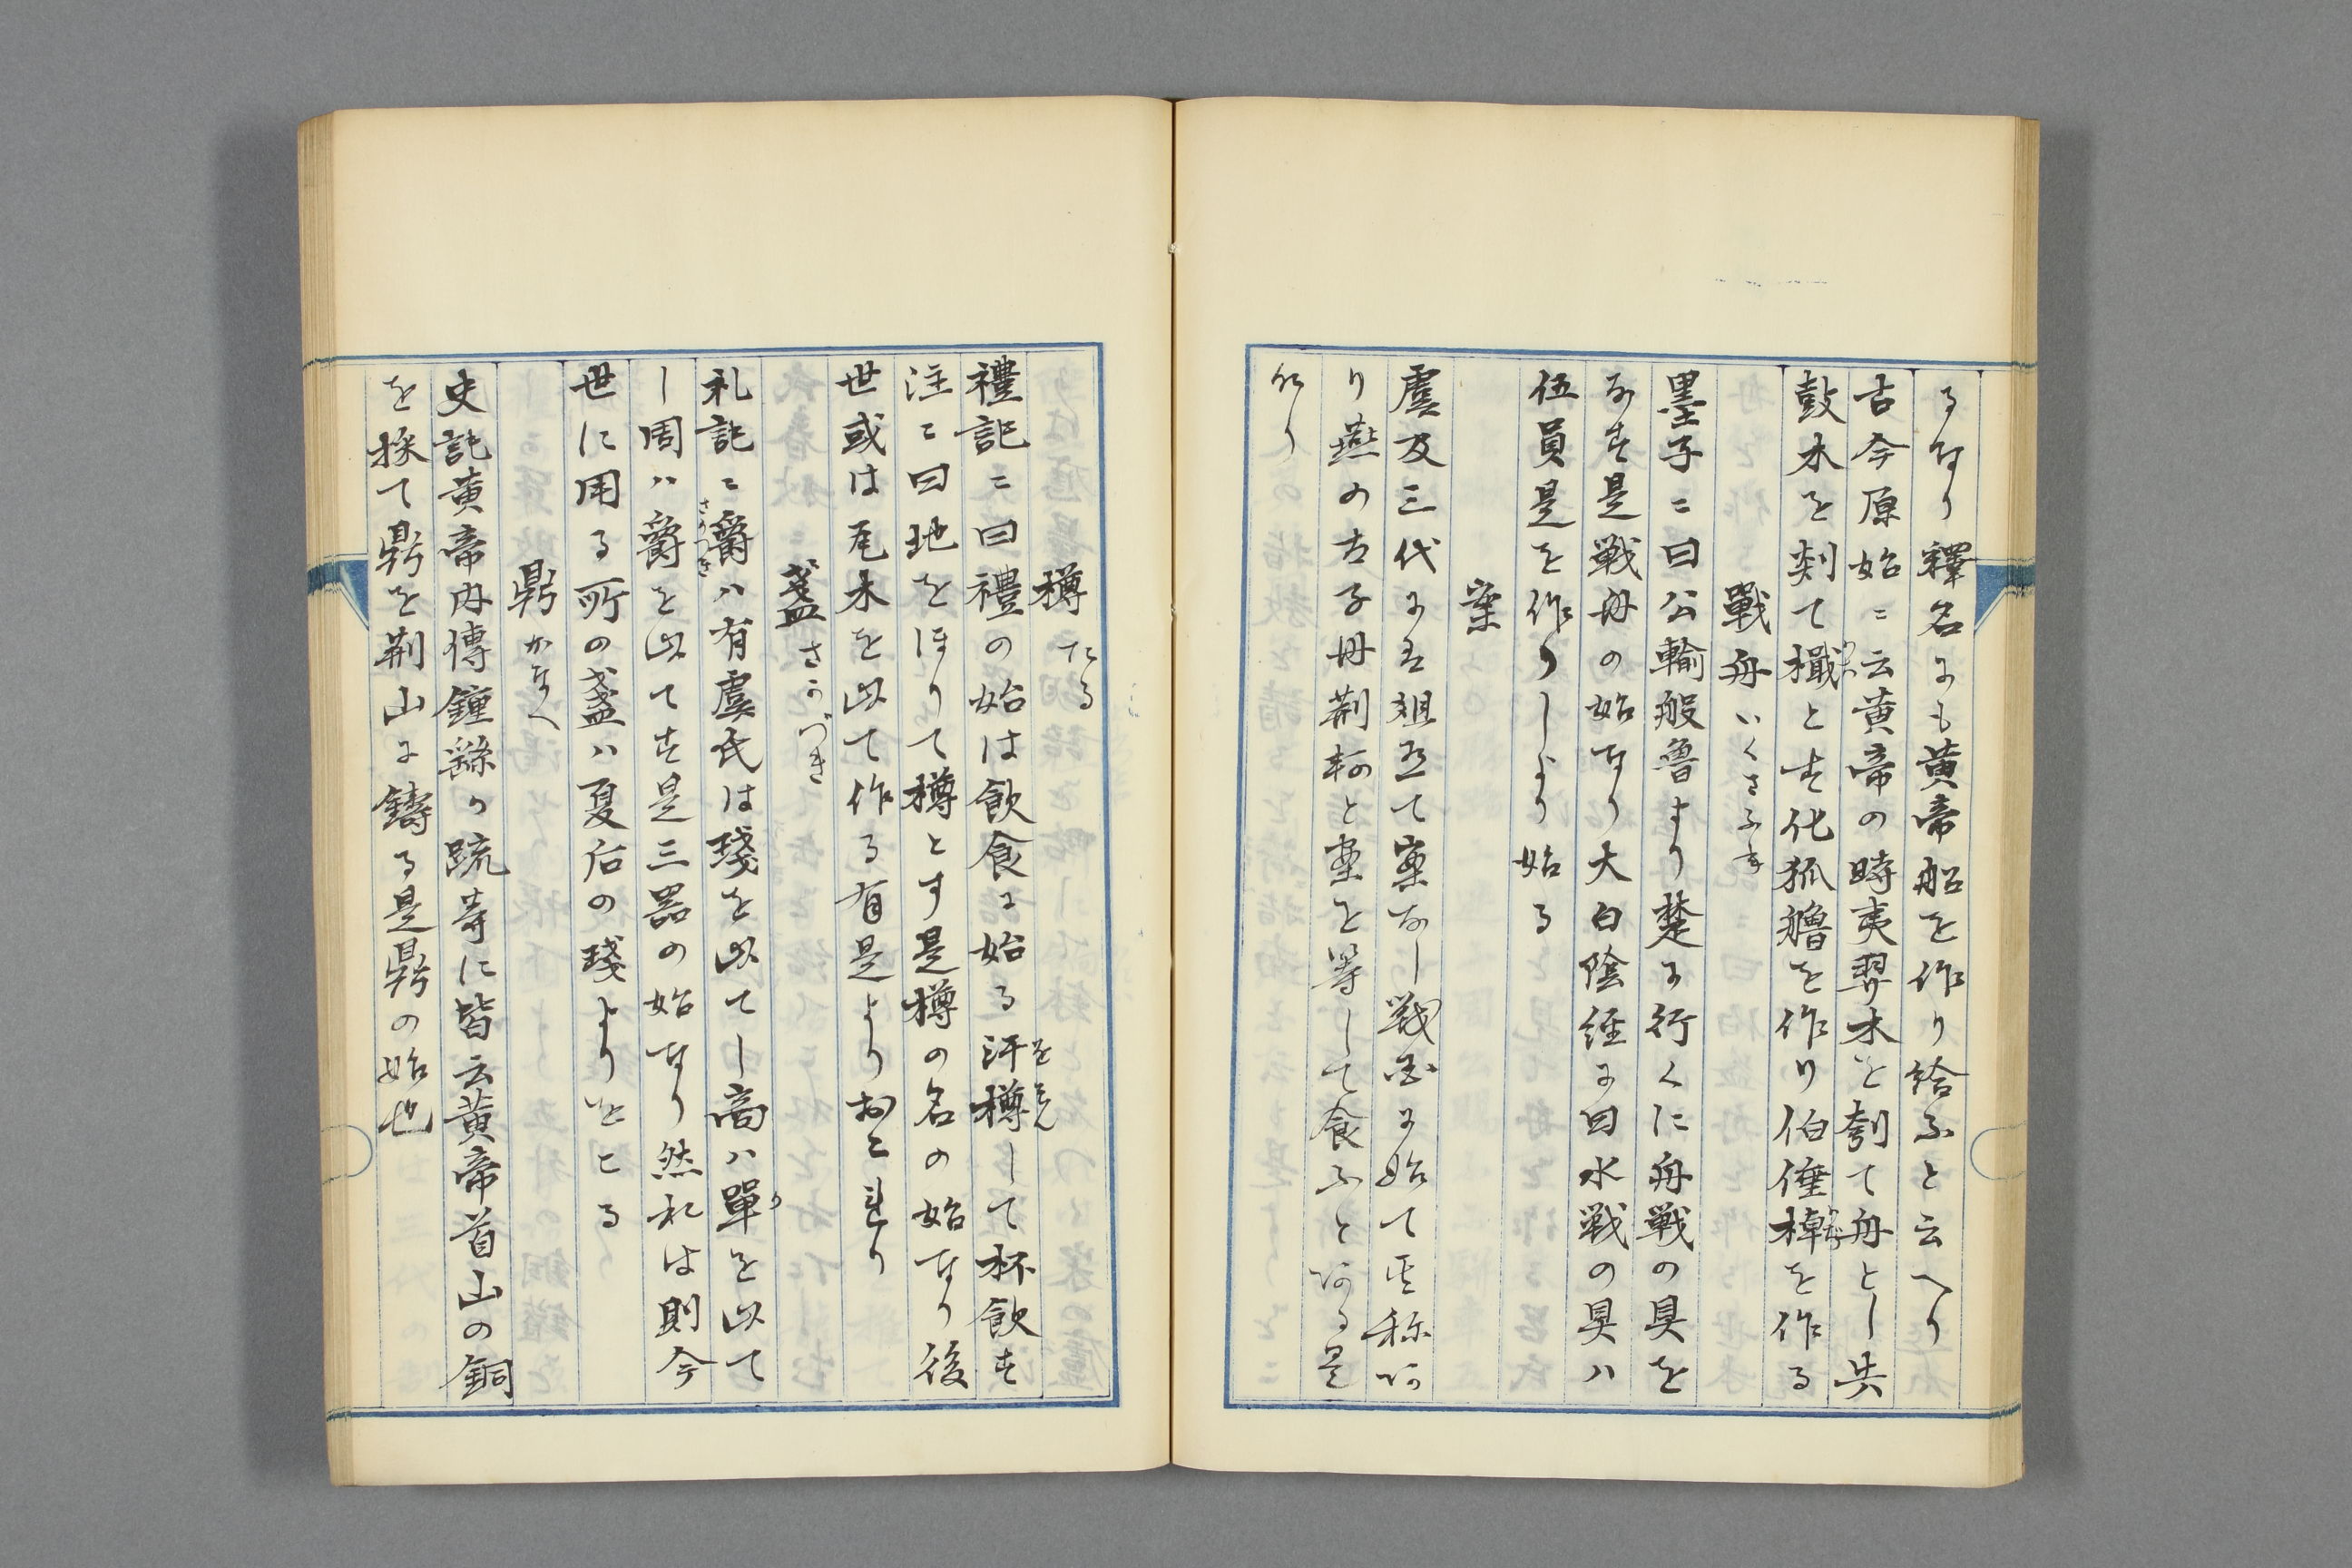 るなり釋名にも黄帝船を作り給ふと云へり
古今原始ニ云黄帝の時夷羿木を刳て舟とし共
鼓木を剡て檝とす化狐艪を作り伯倕棹を作る
戰舟いくさふね
墨子ニ曰公輸般魯より楚に行くに舟戦の具を
なす是戦舟の始なり大白陰経に曰水戦の具ハ
伍員是を作りしより始る
案
虞及三代に有俎豆て案なし戦国に始て其称あ
り燕の太子丹荊軻と案を等して食ふとある是
なり
樽たる
禮記ニ曰禮の始は飲食に始る汙樽して杯飲す
注ニ曰地をほりて樽とす是樽の名の始なり後
世或は瓦木を以て作る有是よりおこれり
盞さかづき
礼記ニ爵ハ有虞氏は琖を以てし商ハ斝を以て
し周ハ爵を以てす是三器の始なり然れは則今
世に用る所の盞ハ夏后の琖よりをこる
鼎かなへ
史記黄帝内傳鍾繇の䟽等に皆云黄帝首山の銅
を採て鼎を荊山に鑄る是鼎の始也